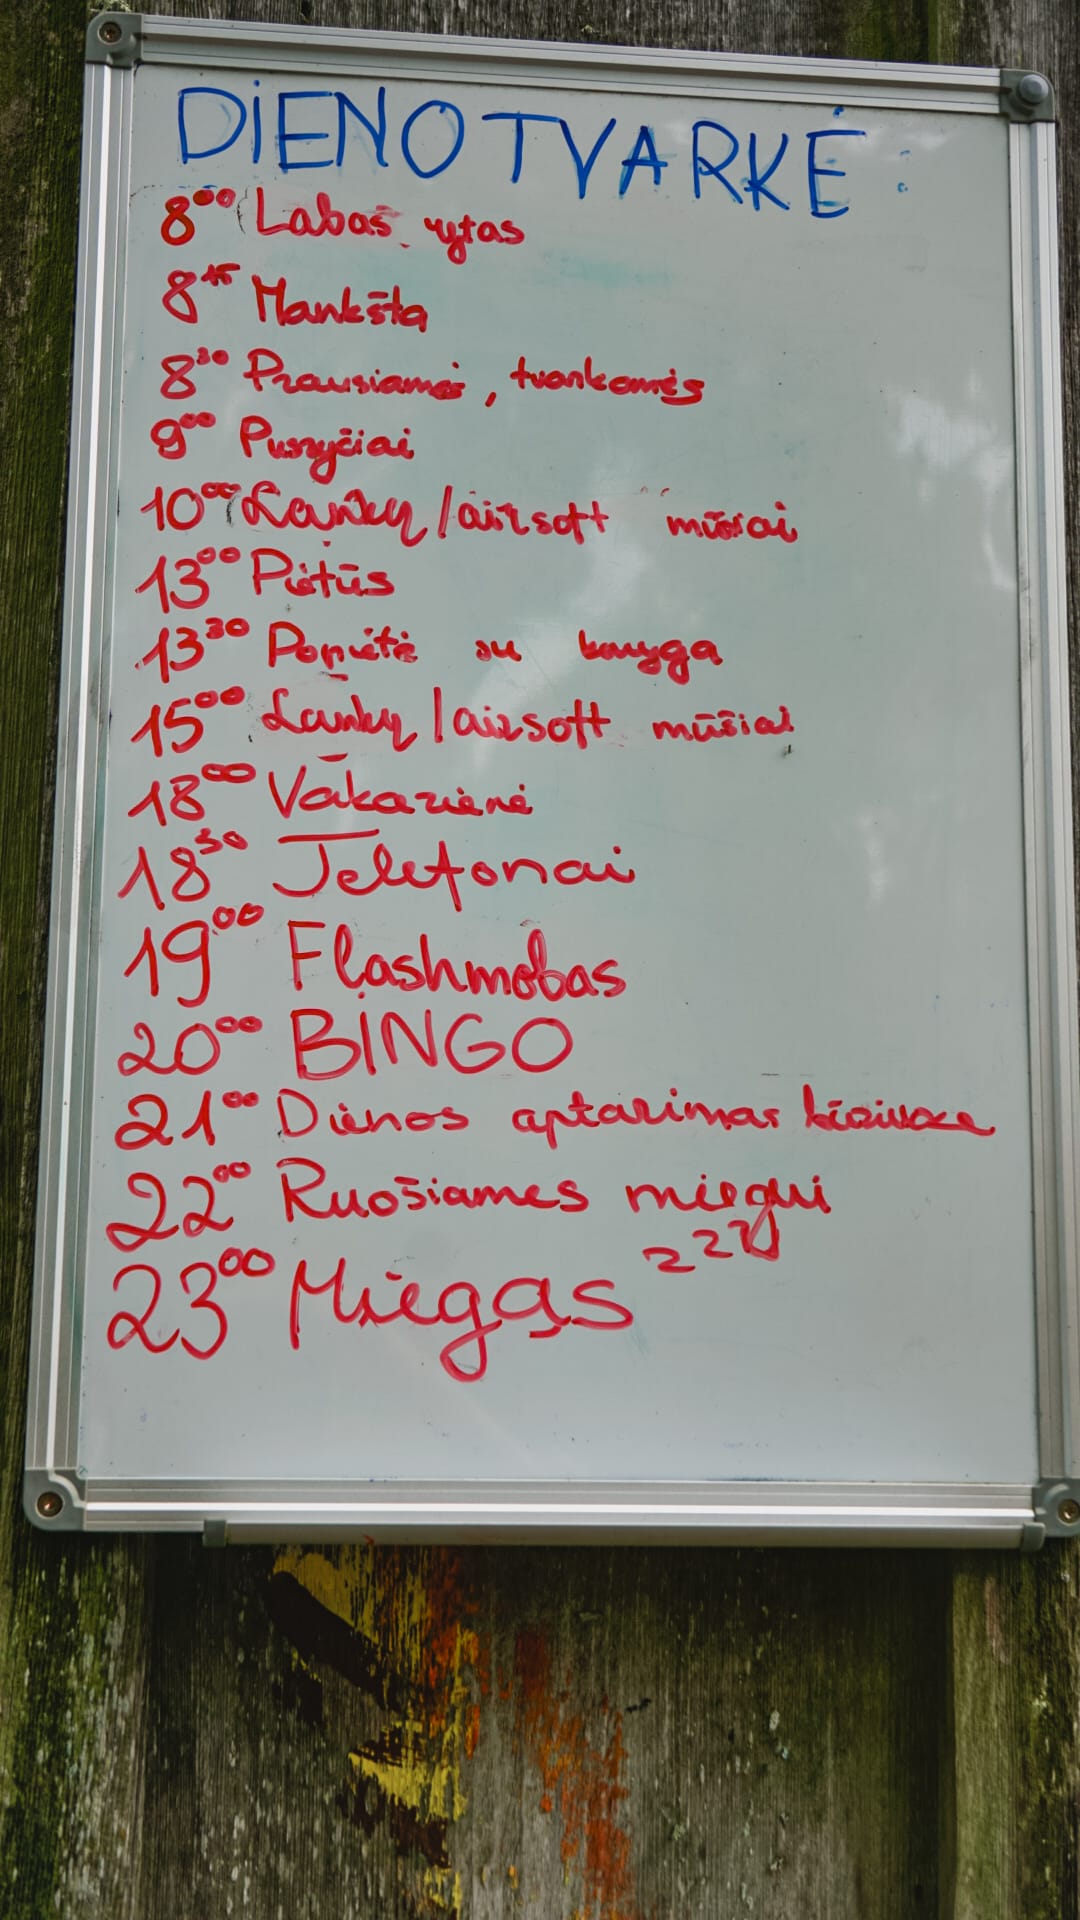 DIENOTVARKĖ:
8⁰⁰ Labas rytas
8¹⁵ Mankšta
8³⁰ Prausiamės, tvarkomės
9⁰⁰ Pusryčiai
10⁰⁰ Lankų/airsoft mūšiai
13⁰⁰ Pietūs
13³⁰ Popietė su knyga
15⁰⁰ Lankų/airsoft mūšiai
18⁰⁰ Vakarienė
18³⁰ Telefonai
19⁰⁰ Flashmobas
20⁰⁰ BINGO
21⁰⁰ Dienos aptarimas
22⁰⁰ Ruošiamės miegui
23⁰⁰ Miegas zzz